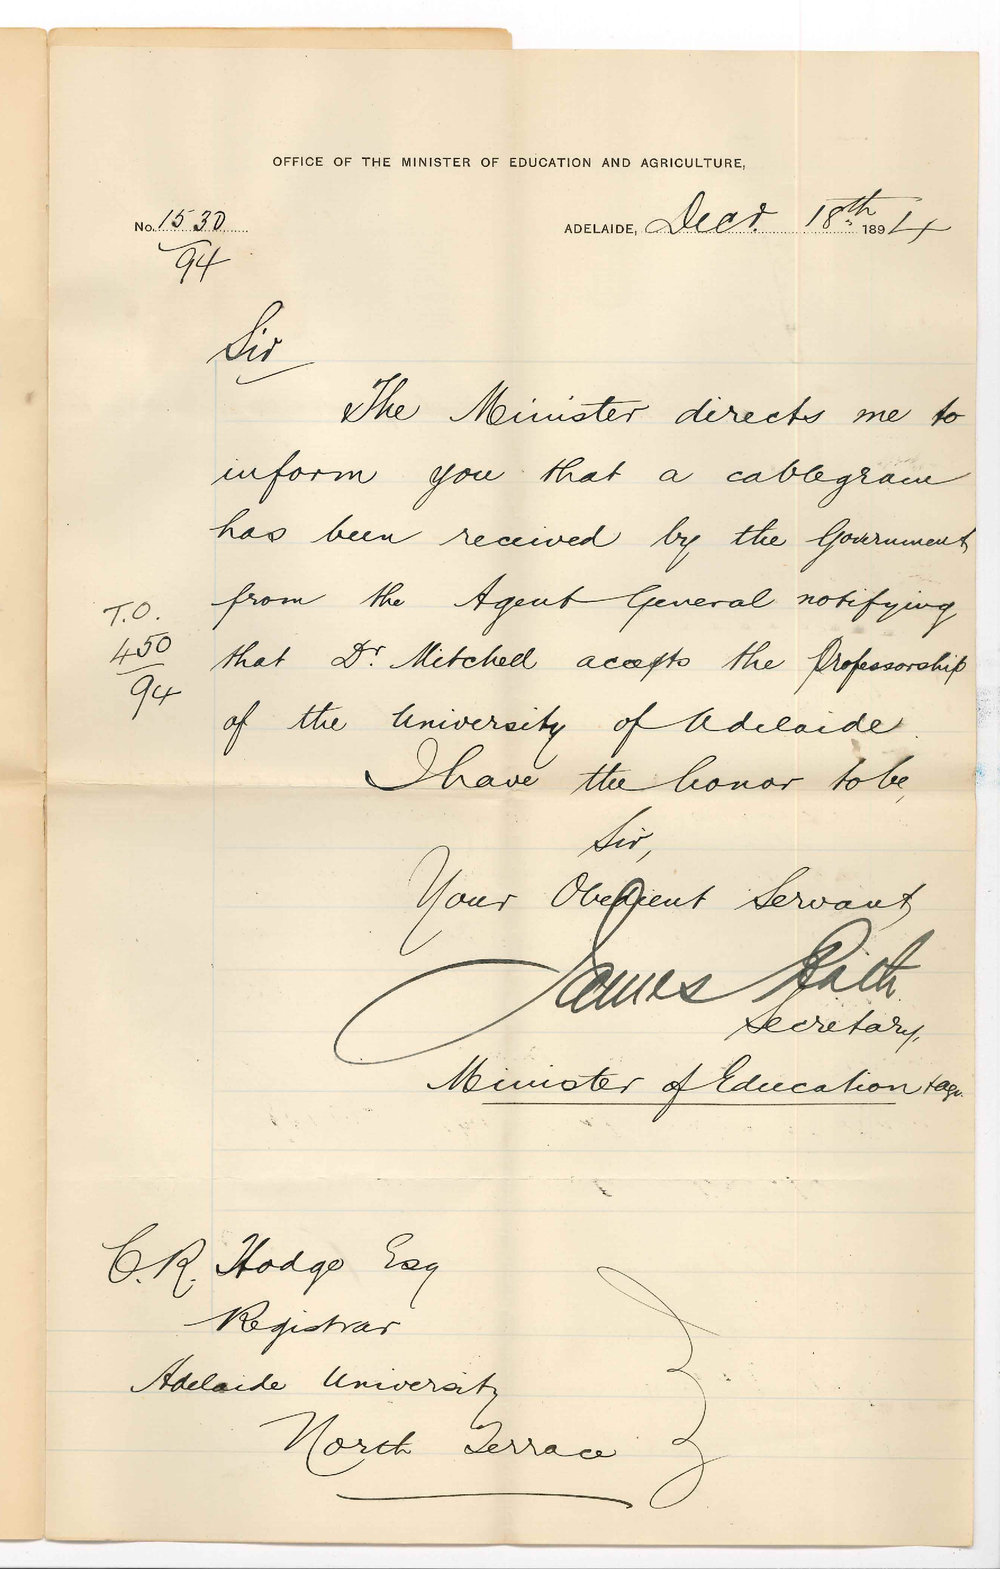 OFFICE OF THE MINISTER OF EDUCATION AND AGRICULTURE,
No. 1530
94
ADELAIDE, Decr. 18th 1894
Sir
The Minister directs me to
inform you that a cablegram
has been received by the Government
from the Agent General notifying
T.O.
450
94
that Dr. Mitchell accepts the Professorship
of the University of Adelaide.
I have the honor to be,
Sir,
Your Obedient Servant
James Bath
Secretary,
Minister of Education + Agr.
C. R. Hodge Esq
Registrar
Adelaide University
North Terrace